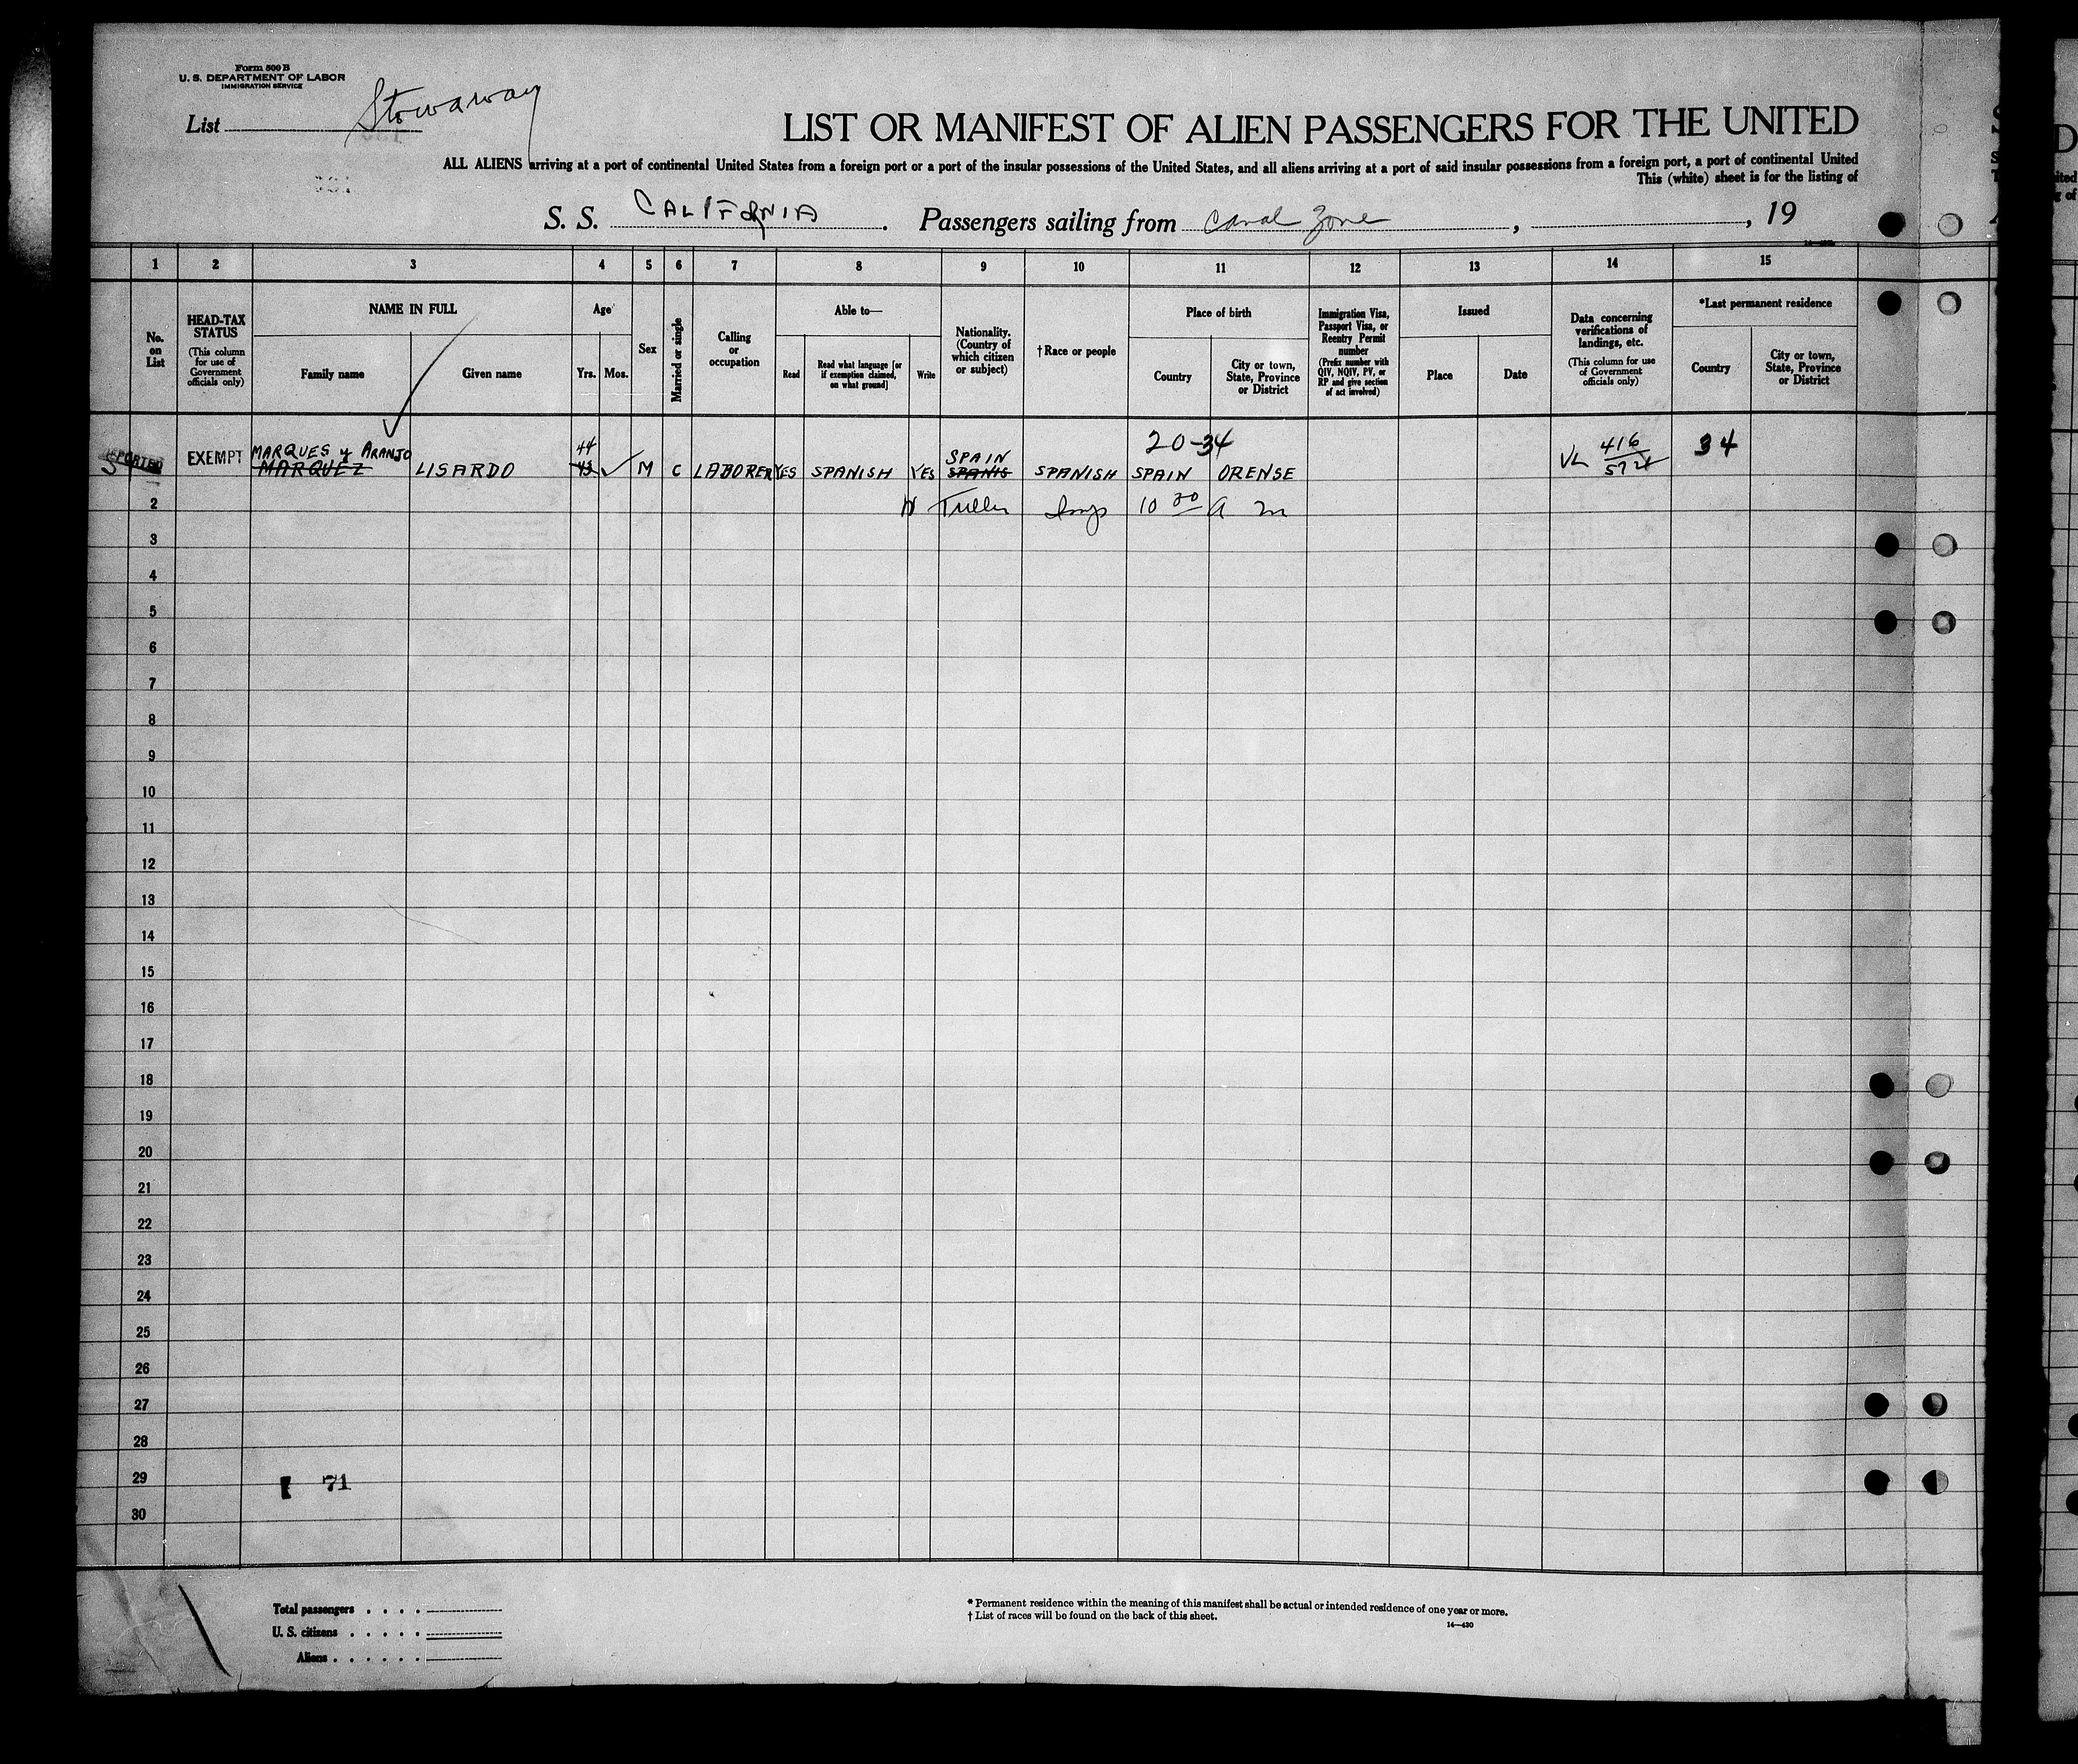 Form 500 B
U. S. DEPARTMENT OF LABOR
IMMIGRATION SERVICE
List Stowaway
LIST OR MANIFEST OF ALIEN PASSENGERS FOR THE UNITED
ALL ALIENS arriving at a port of continental United States from a foreign port or a port of the insular possessions of the United States, and all aliens arriving at a port of said insular possessions from a foreign port, a port of continental United
This (white) sheet is for the listing of
S. S. CALIFORNIA. Passengers sailing from Canal Zone, , 19
1 2 3 4 5 6 7 8 9 10 11 12 13 14 15
No. on List
HEAD-TAX STATUS
(This column for use of Government officials only)
NAME IN FULL
Family name
Given name
Age
Yrs. Mos.
Sex
Married or single
Calling or occupation
Able to—
Read
Read what language [or if exemption claimed, on what ground]
Write
Nationality. (Country of which citizen or subject)
† Race or people
Place of birth
Country
City or town, State, Province or District
Immigration Visa, Passport Visa, or Reentry Permit number
(Prefix number with QIV, NQIV, PV, or RP and give section of act involved)
Issued
Place
Date
Data concerning verifications of landings, etc.
(This column for use of Government officials only)
*Last permanent residence
Country
City or town, State, Province or District
MARQUES y ARANJO 44 SPAIN 20-34 416 34
EXEMPT MARQUEZ LISARDO 43 M C LABORER YES SPANISH YES SPANIS SPANISH SPAIN ORENSE VL
2 10 30 a m
3
4
5
6
7
8
9
10
11
12
13
14
15
16
17
18
19
20
21
22
23
24
25
26
27
28
29 71
30
Total passengers . . . .
U. S. citizens . . . . .
Aliens . . . . . .
* Permanent residence within the meaning of this manifest shall be actual or intended residence of one year or more.
† List of races will be found on the back of this sheet.
14—430